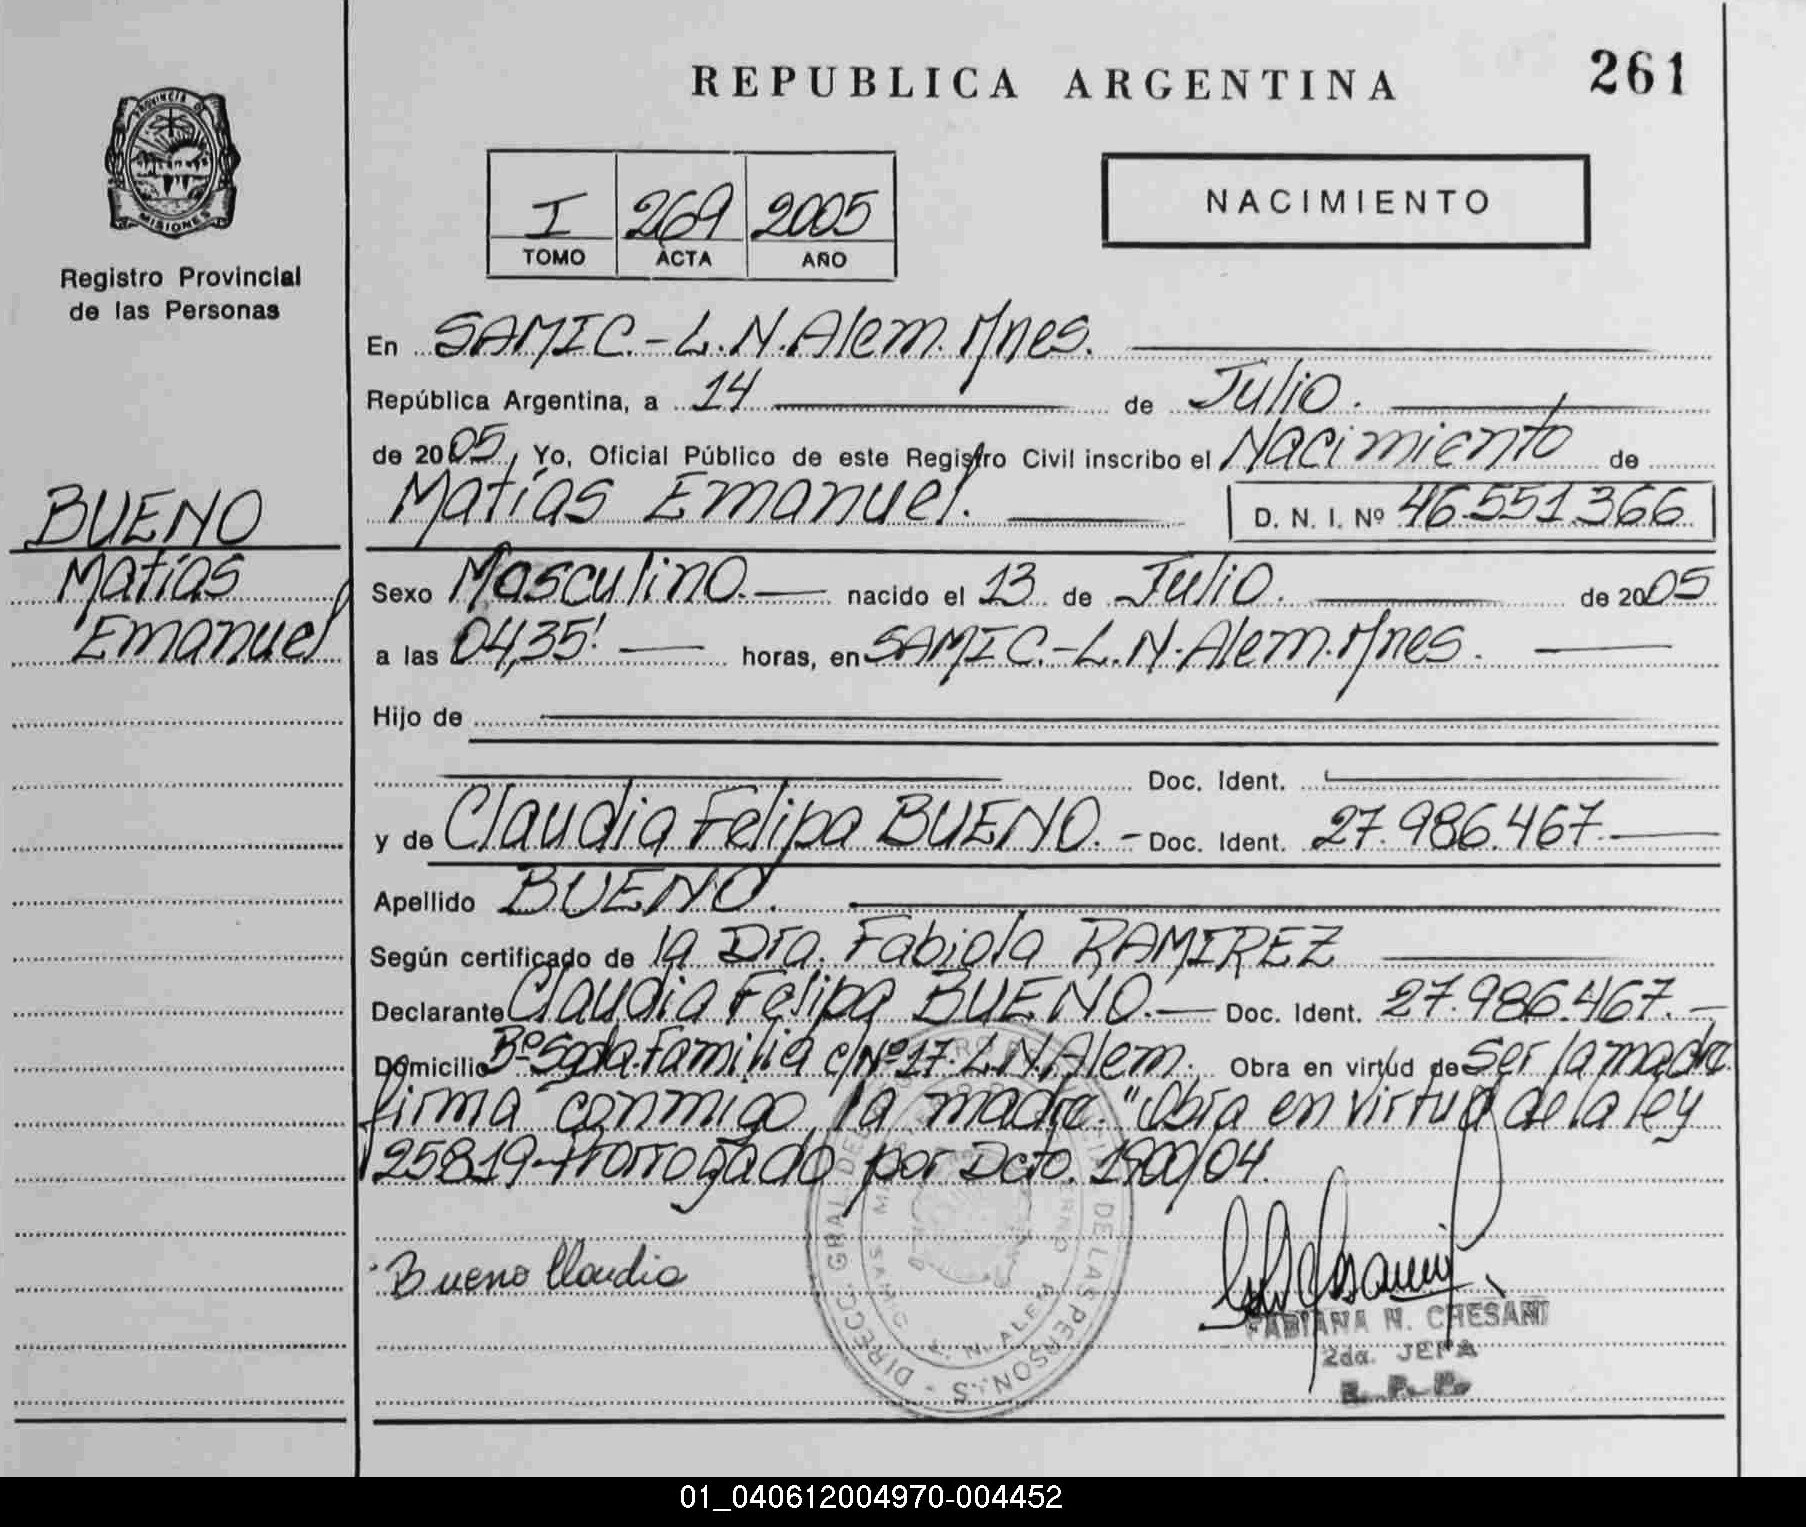 REPUBLICA ARGENTINA
261
PROVINCIA DE
MISIONES
Registro Provincial
de las Personas
I 269 2005
TOMO ACTA AÑO
NACIMIENTO
En SAMIC.-L.N.Alem.Mnes.
República Argentina, a 14 de Julio.
de 2005, Yo, Oficial Público de este Registro Civil inscribo el Nacimiento de
Matías Emanuel. D. N. I. Nº 46.551.366
BUENO
Matías
Emanuel
Sexo Masculino.- nacido el 13 de Julio. de 2005
a las 04,35' horas, en SAMIC.-L.N.Alem.Mnes.
Hijo de
Doc. Ident.
y de Claudia Felipa BUENO.- Doc. Ident. 27.986.467.
Apellido BUENO.
Según certificado de la Dra. Fabiola RAMIREZ
Declarante Claudia Felipa BUENO.- Doc. Ident. 27.986.467.-
Domicilio Bº Sgda.Familia c/Nº17. L.N.Alem. Obra en virtud de ser la madre
firma conmigo la madre. "Obra en virtud de la ley
25819-Prorrogado por Dcto. 1900/04.
Bueno Claudia
DIRECC. GRAL. DE LAS PERSONAS
SAMIC L. N. ALEM
FABIANA N. CHESANI
2da. JEFA
R. P. P.
01_040612004970-004452